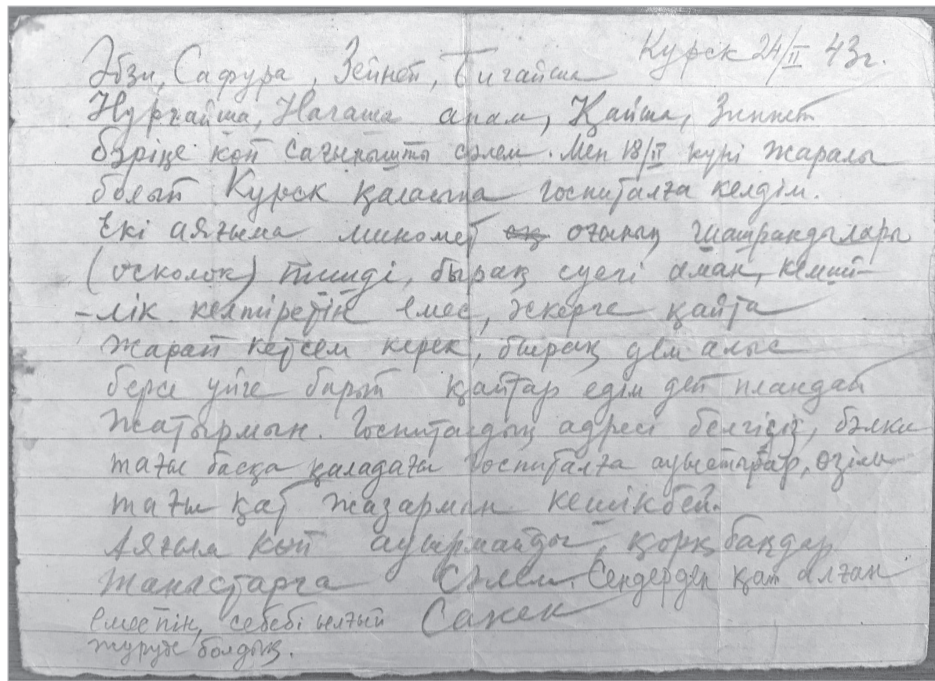 Курск 24/II 43г.
Әбзи, Сафура, Зейнеп, Бигайша
Нұрғайша, Нағаша апам, Қайша, Зиннат
бәріңе көп сағынышты сәлем. Мен 18/II күні жаралы
болып Курск қаласына госпиталға келдім.
Екі аяғыма миномет оғының шашрандылары
(осколок) тиді, бырақ сүегі аман, кемші-
-лік келтіретін емес, әскерге қайта
жарап кетсем керек, бырақ дем алыс
берсе үйге барып қайтар едім деп пландап
жатырмын. Госпиталдың адресі белгісіз, бәлки
тағы басқа қаладағы госпиталға ауыстырар, өзім
тағы қат жазармын кешікпей.
Аяғым көп ауырмайды, қорқбаңдар
жанастарға сәлем. Сендерден қат алған
емеспін, себебі ылғый Сакен
жүруде болдық.